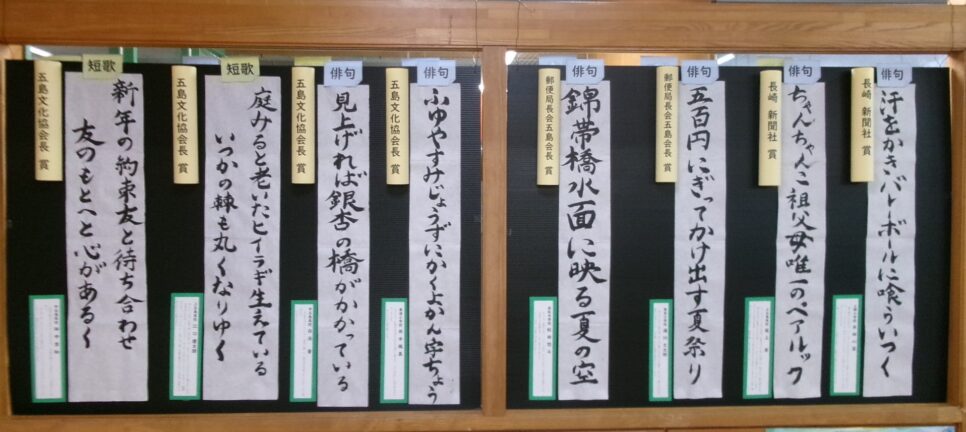 俳句
長崎新聞社 賞
汗をかきバレーボールに喰らいつく
俳句
長崎新聞社 賞
ちゃんちゃんこ祖父母唯一のペアルック
俳句
郵便局長会五島会長 賞
五百円にぎってかけ出す夏祭り
俳句
郵便局長会五島会長 賞
錦帯橋水面に映る夏の空
俳句
五島文化協会長 賞
ふゆやすみじょうずにかくよかん字ちょう
俳句
五島文化協会長 賞
見上げれば銀杏の橋がかかっている
短歌
五島文化協会長 賞
庭みると老いたヒイラギ生えている
いつかの棘も丸くなりゆく
短歌
五島文化協会長 賞
新年の約束友と待ち合わせ
友のもとへと心があるく